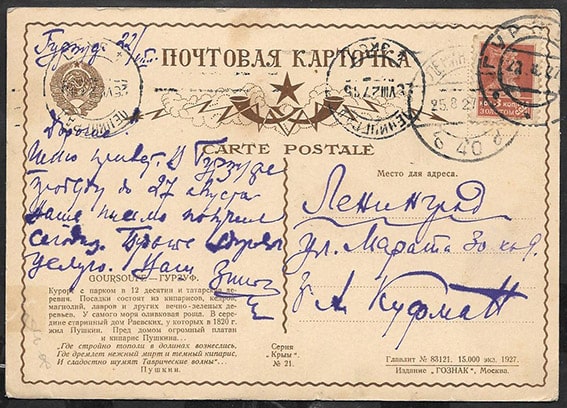 Гурзуф 22/VIII.
ПОЧТОВАЯ КАРТОЧКА
CARTE POSTALE
Дорогие.
Шлю привет. В Гурзуфе
пробуду до 27 августа
Ваше письмо получил
сегодня.
целую. Ваш
GOURSOUFE — ГУРЗУФ.
Курорт с парком в 12 десятин и татарская де-
ревня. Посадки состоят из кипарисов, кедров,
магнолий, лавров и других вечно-зеленых де-
ревьев. У самого моря оливковая роща. В сере-
дине старинный дом Раевских, у которых в 1820 г.
жил Пушкин. Пред домом огромный платан
и кипарис Пушкина...
„Где стройно тополи в долинах вознеслись.
Где дремлет нежный мирт и темный кипарис,
И сладостно шумят Таврические волны“...
Пушкин.
Серия
„Крым“.
№ 21.
ЛЕНИНГРАД
25.8.27
6 40 8
ГУРЗУФ
КОП
ЗОЛОТОМ
Место для адреса.
Ленинград
ул. Марата 30 кв 9.
А. Куфман
Главлит № 83121. 15.000 экз. 1927.
Издание „ГОЗНАК“, Москва.